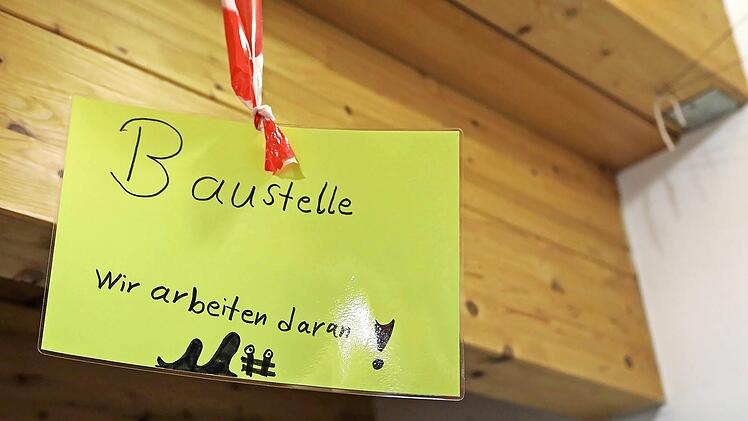 Baustelle
Wir arbeiten daran!